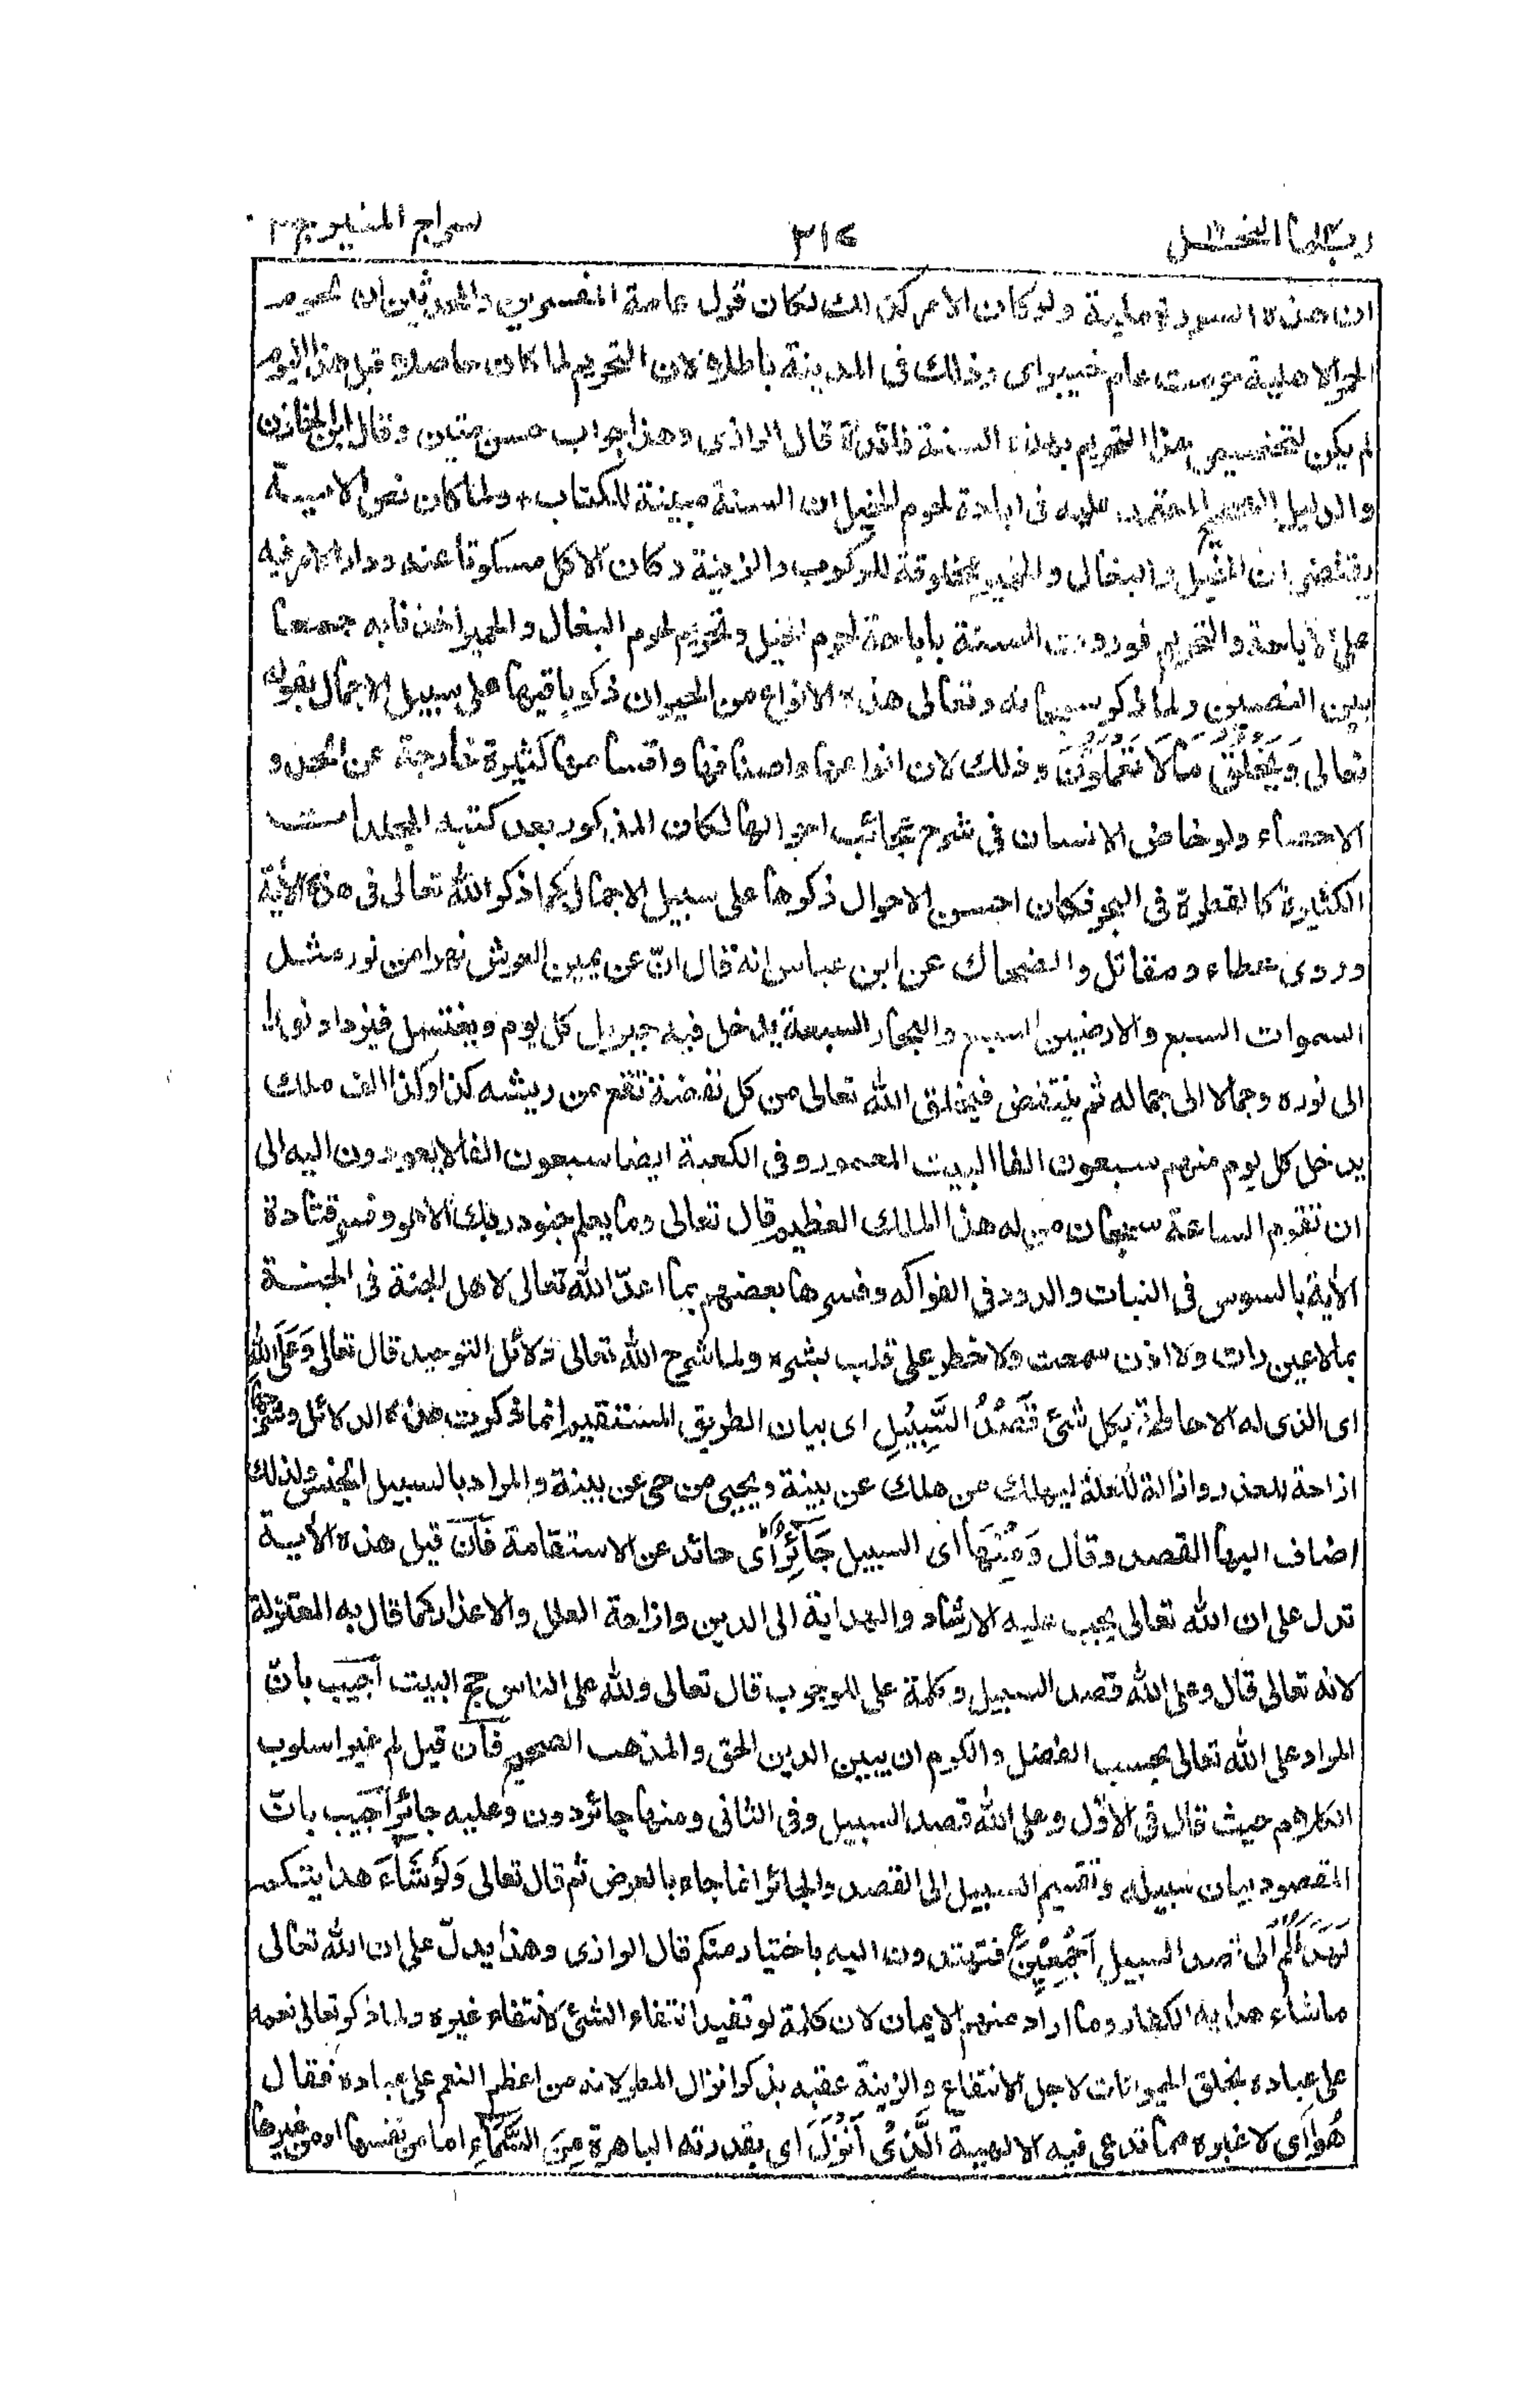 ربما النحل ٣١٤ سراج المنير ج٢
ان هذه السورة مكية ولو كان الامر كذلك لكان قول عامة المفسرين والمحدثين ان لحوم
الحمر الاهلية حرمت عام خيبر اى وذلك فى المدينة باطلا لان التحريم لما كان حاصلا قبل هذا اليوم
لم يكن لتخصيص هذا التحريم بهذه السنة فائدة قال الرازى وهذا جواب حسن متين وقال ابن الخازن
والدليل الصحيح المعتمد عليه فى اباحة لحوم الخيل ان السنة مبينة للكتاب، ولما كان نص الاية
يقتضى ان الخيل والبغال والحمير مخلوقة للركوب والزينة وكان الاكل مسكوتا عنه ودار الامر فيه
على الاباحة والتحريم فوردت السنة باباحة لحوم الخيل وتحريم لحوم البغال والحمير اخذنا به جمعا
بين النصين ولما ذكر سبحانه وتعالى هذه الانواع من الحيوان ذكر باقيها على سبيل الاجمال بقوله
تعالى وَيَخْلُقُ مَا لَا تَعْلَمُوْنَ وذلك لان انواعها واصنافها واقسامها كثيرة خارجة عن الحد و
الاحصاء ولو خاض الانسان فى شرح عجائب احوالها لكان المذكور بعد كتبه المجلدات
الكثيرة كالقطرة فى البحر فكان احسن الاحوال ذكرها على سبيل الاجمال كما ذكر الله تعالى فى هذه الآية
وروى عطاء ومقاتل والضحاك عن ابن عباس انه قال انّ عن يمين العرش نهرا من نور مثل
السموات السبع والارضين السبع والبحار السبعة يدخل فيه جبريل كل يوم ويغتسل فيزداد نورا
الى نوره وجمالا الى جماله ثم ينتفض فيخلق الله تعالى من كل نفضة تقع من ريشه كذا وكذا الف ملك
يدخل كل يوم منهم سبعون الفا البيت المعمور وفى الكعبة ايضا سبعون الفا لا يعودون اليه الى
ان تقوم الساعة سبحان من له هذا الملك العظيم قال تعالى وما يعلم جنود ربك الا هو وفسر قتادة
الآية بالسوس فى النبات والدود فى الفواكه وفسرها بعضهم بما اعدّ الله تعالى لاهل الجنة فى الجنة
بما لا عين رات ولا اذن سمعت ولا خطر على قلب بشر، ولما شرح الله تعالى دلائل التوحيد قال تعالى وَعَلَى اللّٰهِ
اى الذى له الاحاطة بكل شئ قَصْدُ السَّبِيْلِ اى بيان الطريق المستقيم انما ذكرت هذه الدلائل وشرحها
ازاحة للعذر وازالة للعلة ليهلك من هلك عن بينة ويحيى من حى عن بينة والمراد بالسبيل الجنس ولذلك
اضاف اليها القصد وقال وَمِنْهَا اى السبيل جَآئِرٌ اى حائد عن الاستقامة فان قيل هذه الآية
تدل على ان الله تعالى يجب عليه الارشاد والهداية الى الدين وازاحة العلل والاعذار كما قال به المعتزلة
لانه تعالى قال وعلى الله قصد السبيل وكلمة على للوجوب قال تعالى ولله على الناس حج البيت اجيب بانّ
المراد على الله تعالى بحسب الفضل والكرم ان يبين الدين الحق والمذهب الصحيح فان قيل لم غير اسلوب
الكلام حيث قال فى الاوّل وعلى الله قصد السبيل وفى الثانى ومنها جائر دون وعليه جائر اجيب بانّ
المقصود بيان سبيله وتقسيم السبيل الى القصد والجائر انما جاء بالعرض ثم قال تعالى وَلَوْ شَآءَ هدايتكم
لَهَدٰىكُمْ الى قصد السبيل اَجْمَعِيْنَ فتهتدون اليه باختيار منكم قال الرازى وهذا يدلّ على ان الله تعالى
ما شاء هداية الكفار وما اراد منهم الايمان لان كلمة لو تفيد انتفاء الشئ لانتفاء غيره ولما ذكر تعالى نعمه
على عباده بخلق الحيوانات لاجل الانتفاع والزينة عقبه بذكر انزال المطر لانه من اعظم النعم على عباده فقال
هُوَ اى لا غيره مما تدعى فيه الالهية الَّذِىْ اَنْزَلَ اى بقدرته الباهرة مِنَ السَّمَآءِ اما من نفسها او من غيرها